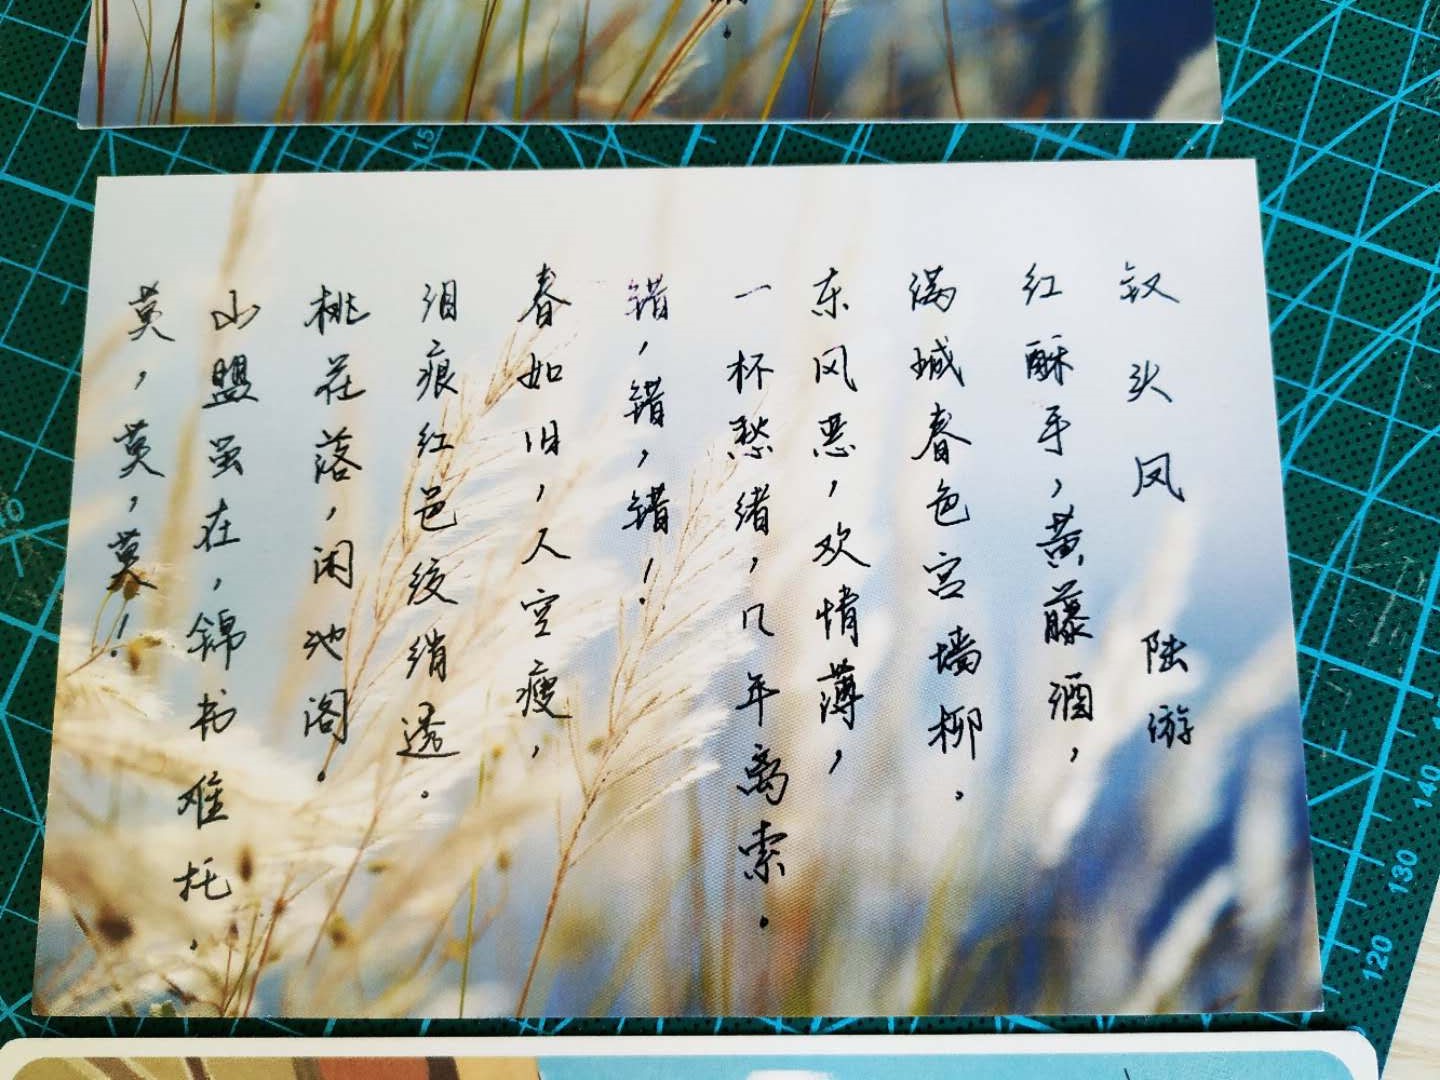 钗头凤 陆游
红酥手，黄藤酒，
满城春色宫墙柳.
东风恶，欢情薄，
一杯愁绪，几年离索.
错，错，错！
春如旧，人空瘦，
泪痕红邑绞绡透.
桃花落，闲池阁.
山盟虽在，锦书难托.
莫，莫，莫！
15
140
130
120